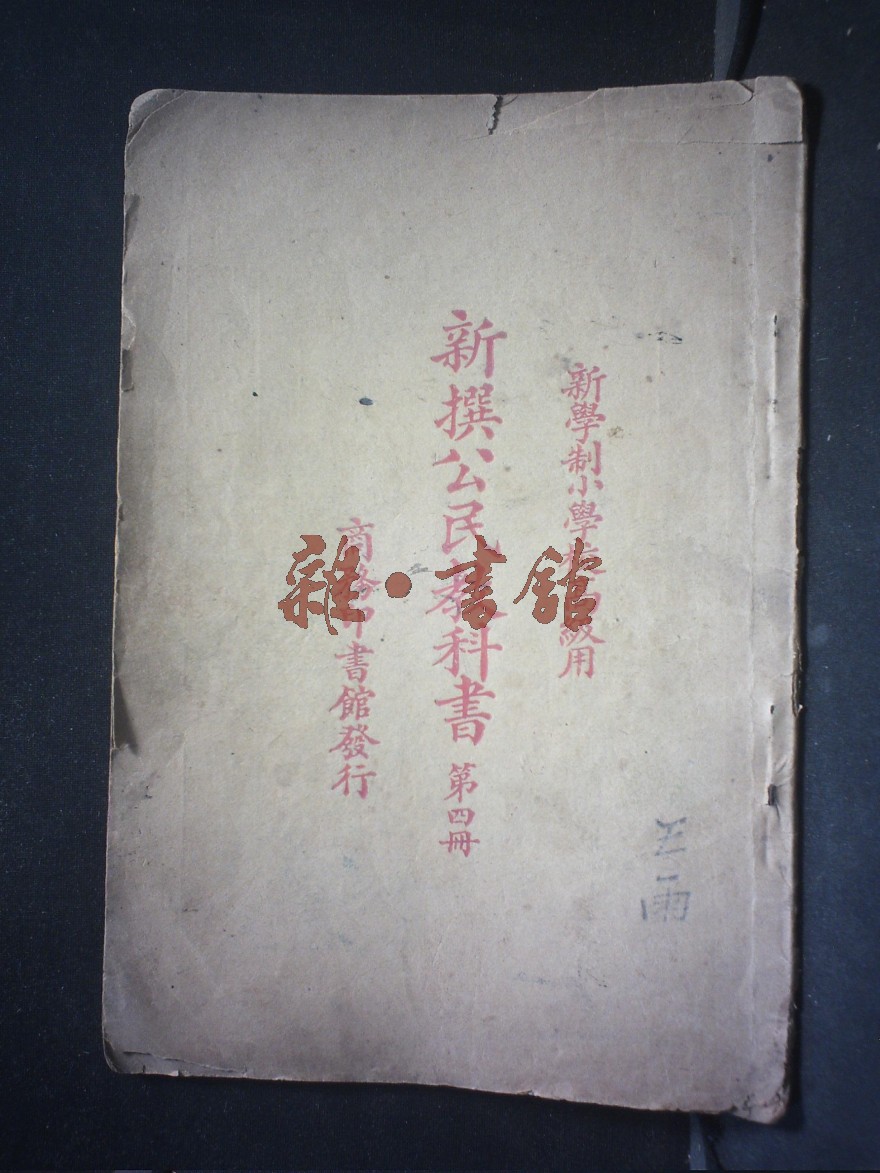 新學制小學校高級用
新撰公民教科書 第四冊
商務印書館發行
雜·書館